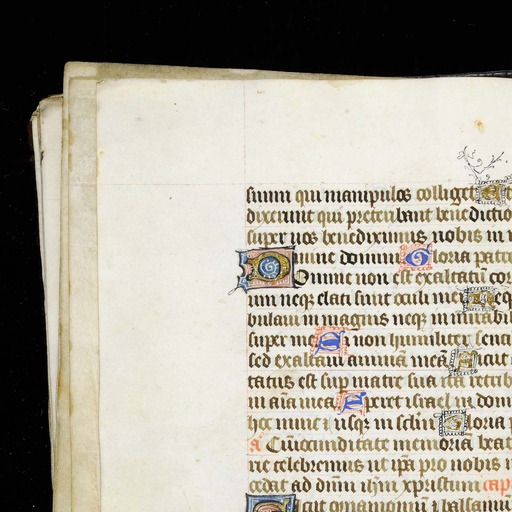 suum qui manipulos colliget Et
dixerunt qui preteribant benedictio
super uos benediximus nobis in n
nomine domini Gloria patri
Domine non est exaltatū cor
um neq; elati sunt oculi mei Neq
bulaui in magnis neq; in mirabil
super me Si non humiliter senti
sed exaltaui animā meā Sicut
tatus est sup matre sua ita retrib
in aīa mea Speret israel in dom
hoc nunc ⁊ usq; in sc̄lm Gloria p
a Cū iocunditate memoria beat
rie celebremus ut ip̄a pro nobis
cedat ad dn̄m ih̄m xp̄istum cap
Sicut cynamomū ⁊ balsamū